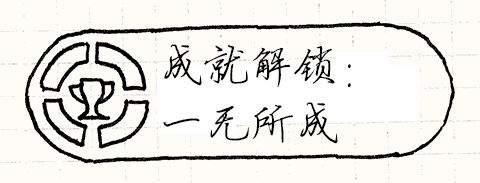 成就解锁：
一无所成